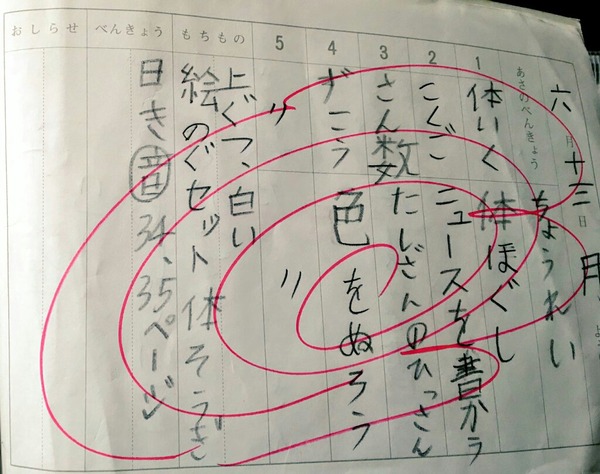 六月十三日 月よう
あさのべんきょう ちょうれい
1 体いく 体ほぐし
2 こくご ニュースを書かう
3 さん数 たしざんのひっさん
4 ずこう 色をぬろう
5 〃 〃
もちもの 上ぐつ、白い
絵のぐセット 体そうぎ
べんきょう 日き 音 34、35ページ
おしらせ